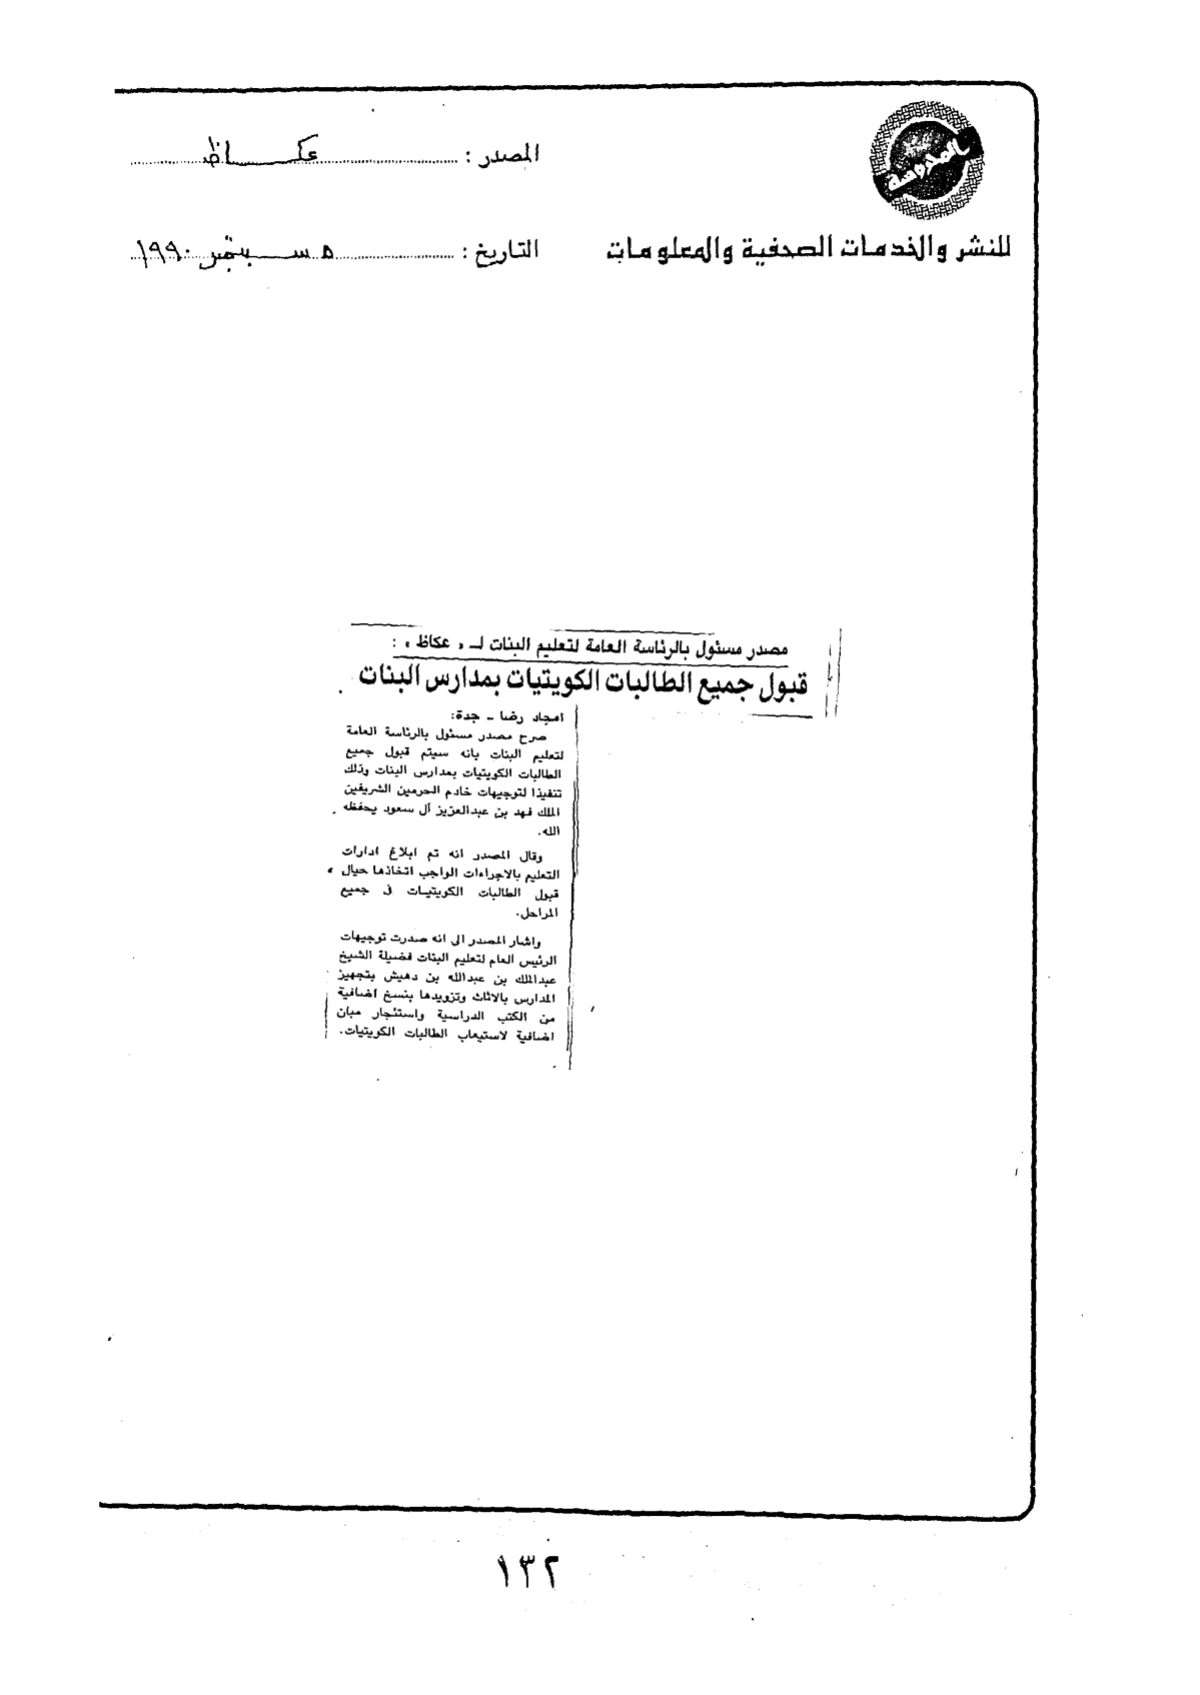 المحروسة
المصدر : عكاظ
للنشر والخدمات الصحفية والمعلومات
التاريخ : ٥ سبتمبر ١٩٩٠
مصدر مسئول بالرئاسة العامة لتعليم البنات لـ « عكاظ » :
قبول جميع الطالبات الكويتيات بمدارس البنات
امجاد رضا - جدة:
صرح مصدر مسئول بالرئاسة العامة
لتعليم البنات بانه سيتم قبول جميع
الطالبات الكويتيات بمدارس البنات وذلك
تنفيذا لتوجيهات خادم الحرمين الشريفين
الملك فهد بن عبدالعزيز آل سعود يحفظه
الله.
وقال المصدر انه تم ابلاغ ادارات
التعليم بالاجراءات الواجب اتخاذها حيال
قبول الطالبات الكويتيات في جميع
المراحل.
واشار المصدر الى انه صدرت توجيهات
الرئيس العام لتعليم البنات فضيلة الشيخ
عبدالملك بن عبدالله بن دهيش بتجهيز
المدارس بالاثاث وتزويدها بنسخ اضافية
من الكتب الدراسية واستئجار مبان
اضافية لاستيعاب الطالبات الكويتيات.
١٣٢